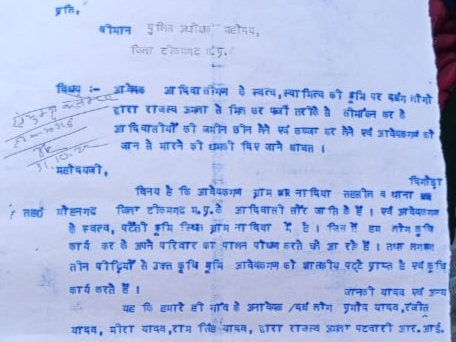 प्रति,
श्रीमान पुलिस अधीक्षक महोदय,
जिला टीकमगढ म.प्र.
विषय :- आवेदक आदिवासीगण के स्वत्व, स्वामित्व की भूमि पर दबंग लोगो
द्वारा राजस्व अमला से मिल कर फर्जी तरीके से सीमांकन कर के
आदिवासीयों की जमीन छीन लेने एवं कब्जा कर लेने एवं आवेदकगण को
जान से मारने की धमकी दिए जाने बाबत ।
31.10.22
महोदयजी,
विनय है कि आवेदकगण ग्राम नादिया तहसील व थाना
मोहनगढ जिला टीकमगढ म.प्र.के आदिवासी सौंर जाति के है । एवं आवेदकगण
के स्वत्व, पट्टे की भूमि स्थित ग्राम नादिया में है । जिस में हम लोग कृषि
कार्य कर के अपने परिवार का पालन पोषण करते आ रहे है । तथा लगभग
तीन पीढ़ियों से उक्त कृषि भूमि आवेदकगण को शासकीय पट्टे प्राप्त है एवं कृषि
कार्य करते है ।
जानकी यादव एवं अन्य
यह कि हमारे ही गांव के अनावेदक /दबंग लोग प्रमोद यादव, रंजीत
यादव, मीरा यादव, राम सिंह यादव, द्वारा राजस्व अमला पटवारी आर.आई.